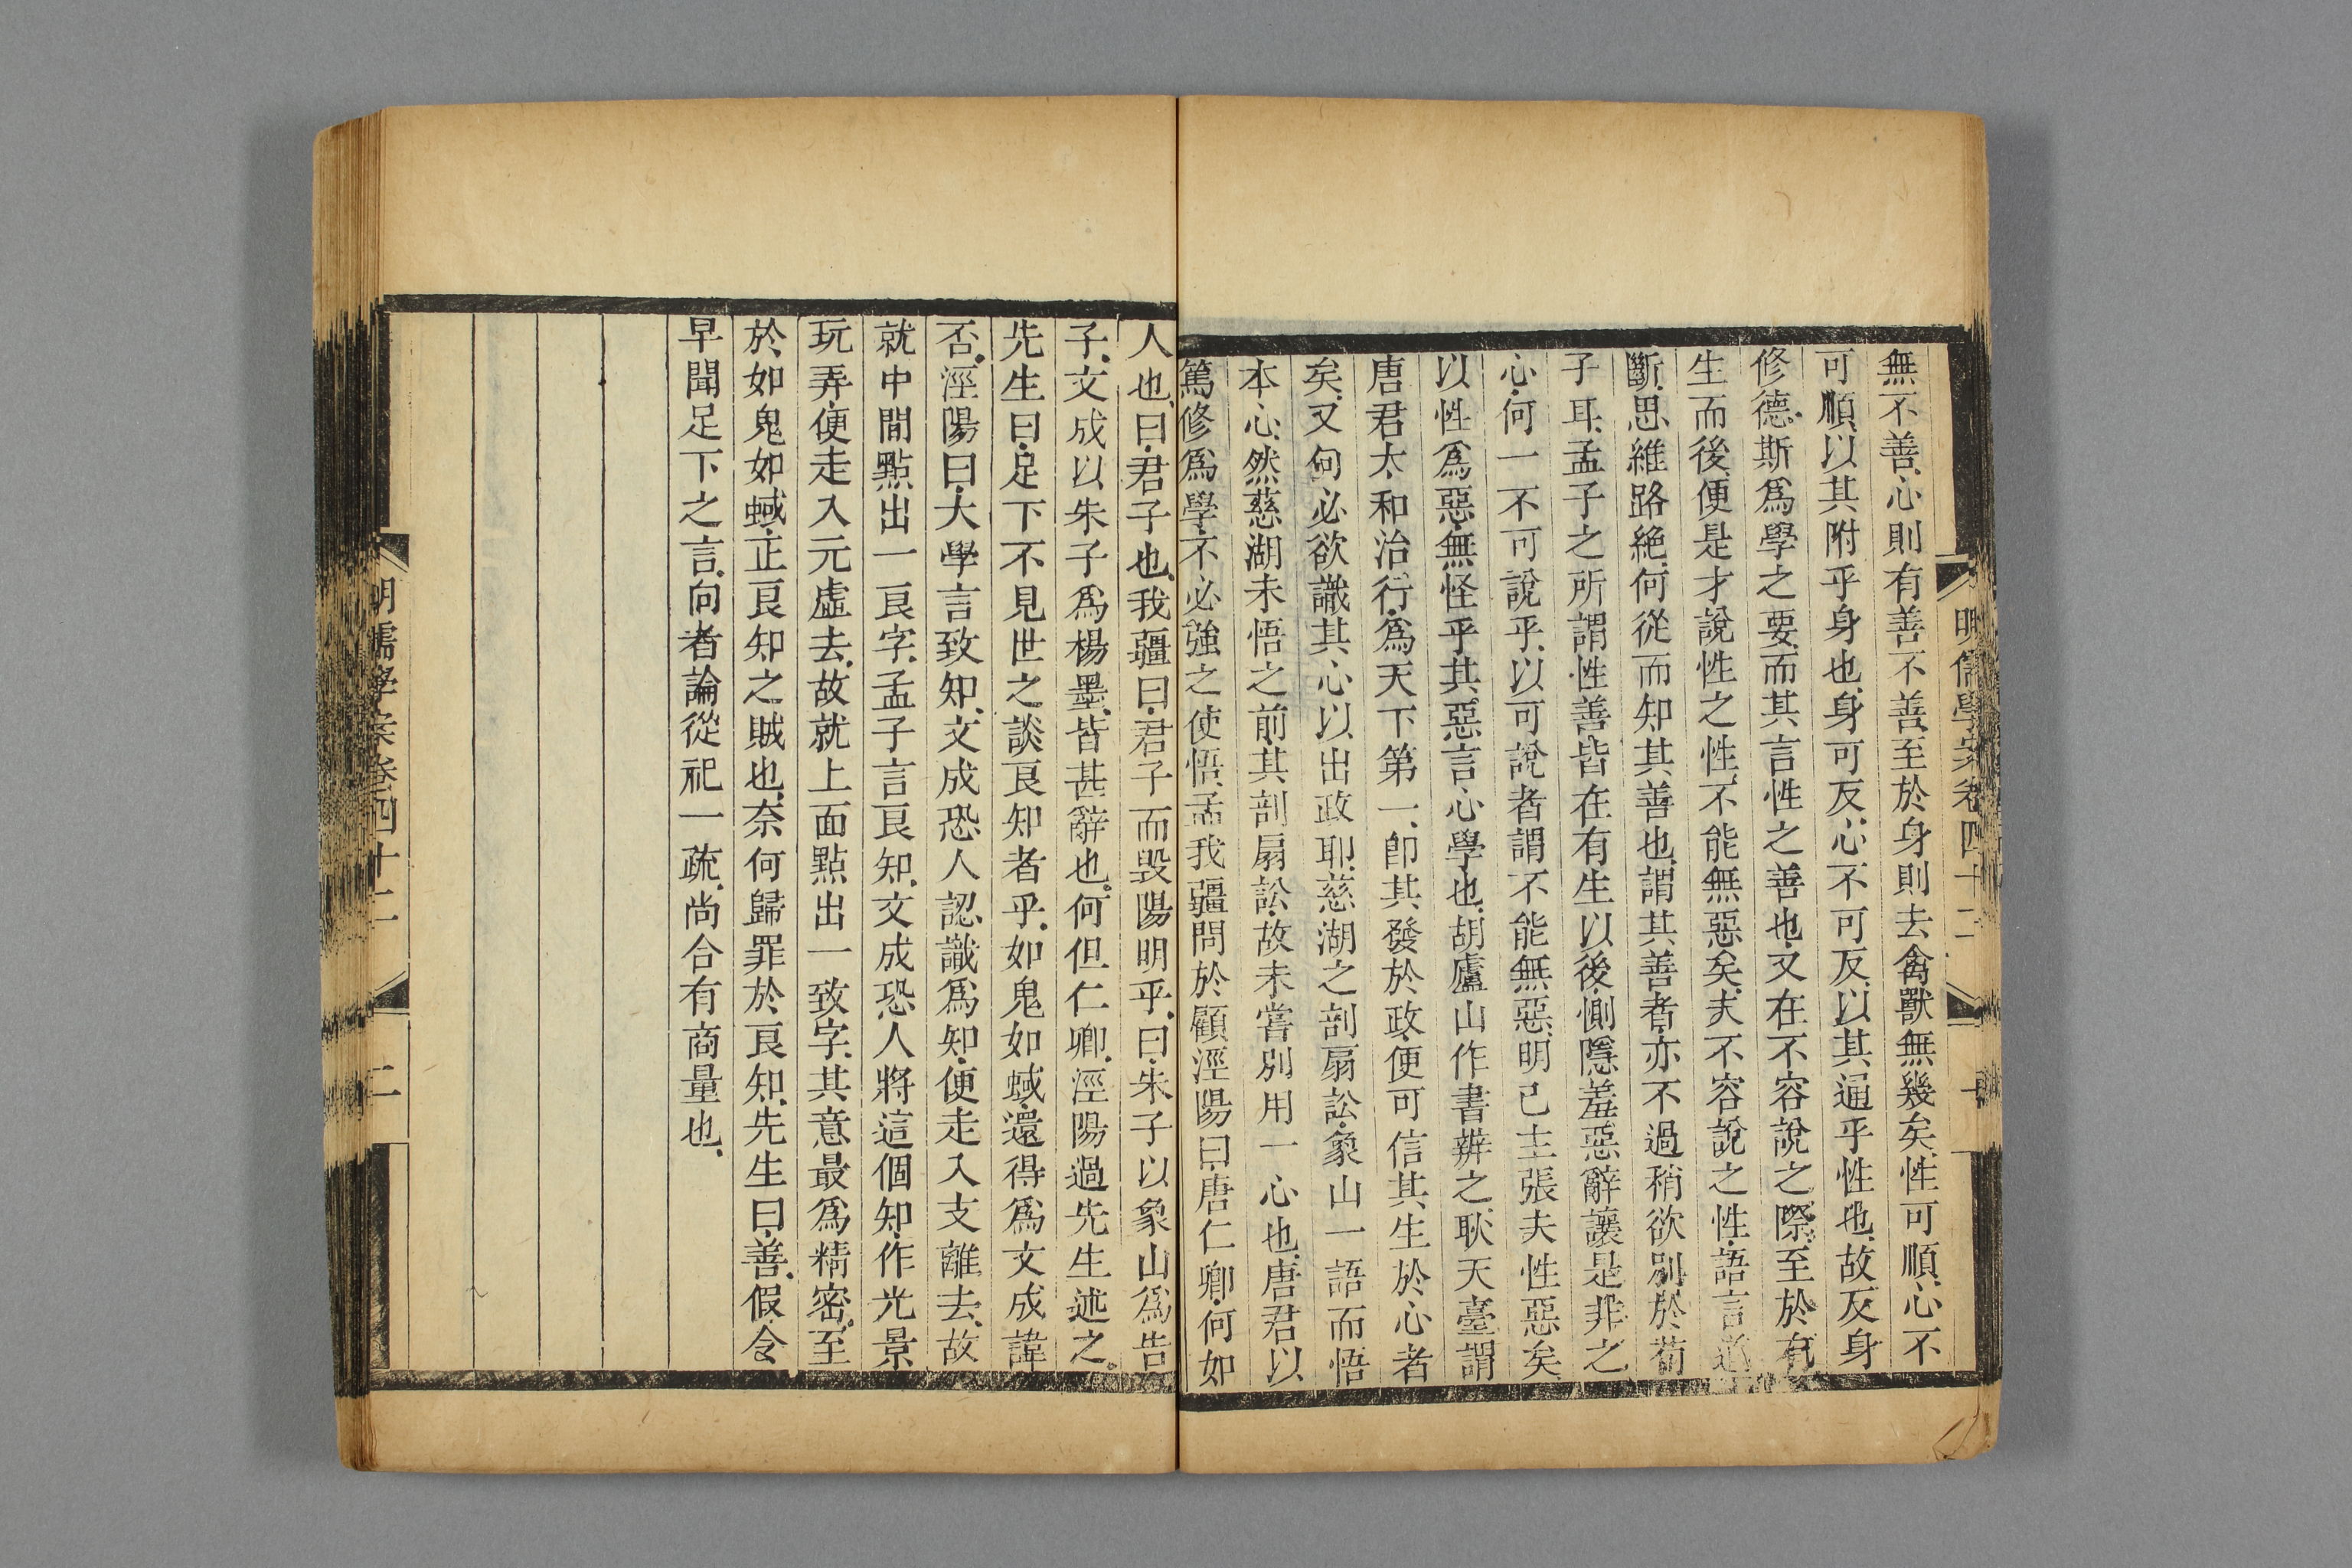 無不善、心則有善不善、至於身則去禽獸無幾矣、性可順、心不
可順、以其附乎身也、身可反、心不可反、以其通乎性也、故反身
修德、斯爲學之要、而其言性之善也、又在不容說之際、至於有
生而後、便是才說性之性、不能無惡矣、夫不容說之性、語言道
斷、思維路絶、何從而知其善也、謂其善者、亦不過稍欲別於荀
子耳、孟子之所謂性善、皆在有生以後、惻隱羞惡辭讓是非之
心、何一不可說乎、以可說者謂不能無惡、明已主張夫性惡矣
以性爲惡、無怪乎其惡言心學也、胡廬山作書辨之、耿天臺謂
唐君太和治行、爲天下第一、卽其發於政、便可信其生於心者
矣、又何必欲識其心以出政耶、慈湖之剖扇訟、象山一語而悟
本心、然慈湖未悟之前、其剖扇訟、故未嘗別用一心也、唐君以
篤修爲學、不必強之使悟、孟我疆問於顧涇陽曰、唐仁卿、何如
人也、曰、君子也、我疆曰、君子而毀陽明乎、曰、朱子以象山爲告
子、文成以朱子爲楊墨、皆甚辭也、何但仁卿、涇陽過先生述之。
先生曰、足下不見世之談良知者乎、如鬼如蜮、還得爲文成諱
否、涇陽曰、大學言致知、文成恐人認識爲知、便走入支離去、故
就中間點出一良字、孟子言良知、文成恐人將這個知、作光景
玩弄、便走入元虛去、故就上面點出一致字、其意最爲精密、至
於如鬼如蜮、正良知之賊也、奈何歸罪於良知、先生曰、善、假令
早聞足下之言、向者論從祀一疏、尚合有商量也、
明儒學案卷四十二
二